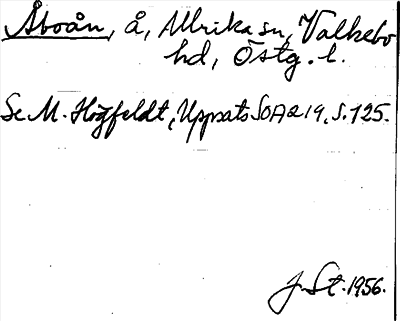 Åboån, å, Ulrika sn, Valkebo
hd, Östg. l.
Se M. Högfeldt, Uppsats SOA 219, s. 125.
J. St. 1956.